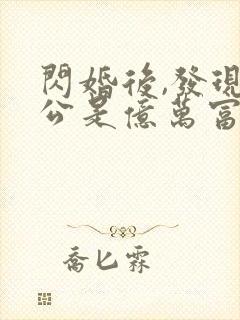 閃婚後,發現
公是億萬富
喬匕霖